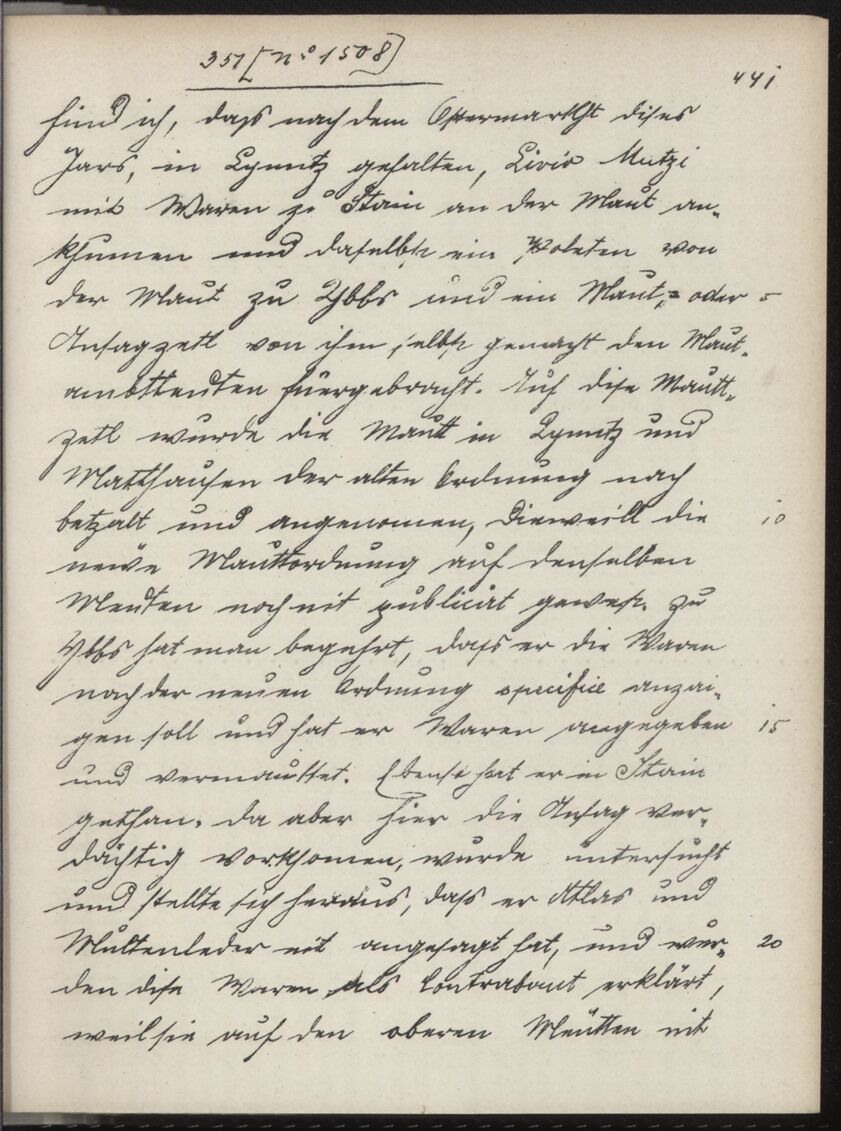 351 [No 1508]
441
find ich, dass nach dem Ostermarkht dises
Jars, in Lynntz gehalten, Livio Mutzi
mit Waren zu Stain an der Maut an-
khumen und daselbst ein Poleten von
der Maut zu Ybbs und ein Maut- oder 5
Ansagzetl von ihm selbst gemacht den Maut-
ambtleuten fuergebracht. Auf dise Mautt-
zetl wurde die Mautt in Lynntz und
Matthausen der alten Ordnung nach
betzalt und angenomen, Dieweill die 10
newe Mauttordnung auf denselben
Meuten noch nit publicirt gewest. Zu
Ybbs hat man begehrt, dass er die Waren
nach der neuen Ordnung specifice anzai-
gen soll und hat er Waren angegeben 15
und vermauttet. Ebenso hat er in Stain
gethan. Da aber hier die Ansag ver-
dächtig vorkhomen, wurde untersucht
und stellte sich heraus, dass er Atlas und
Multenleder nit angesagt hat, und wur- 20
den dise Waren als Contrabant erklärt,
weil sie auf den oberen Meutten nit